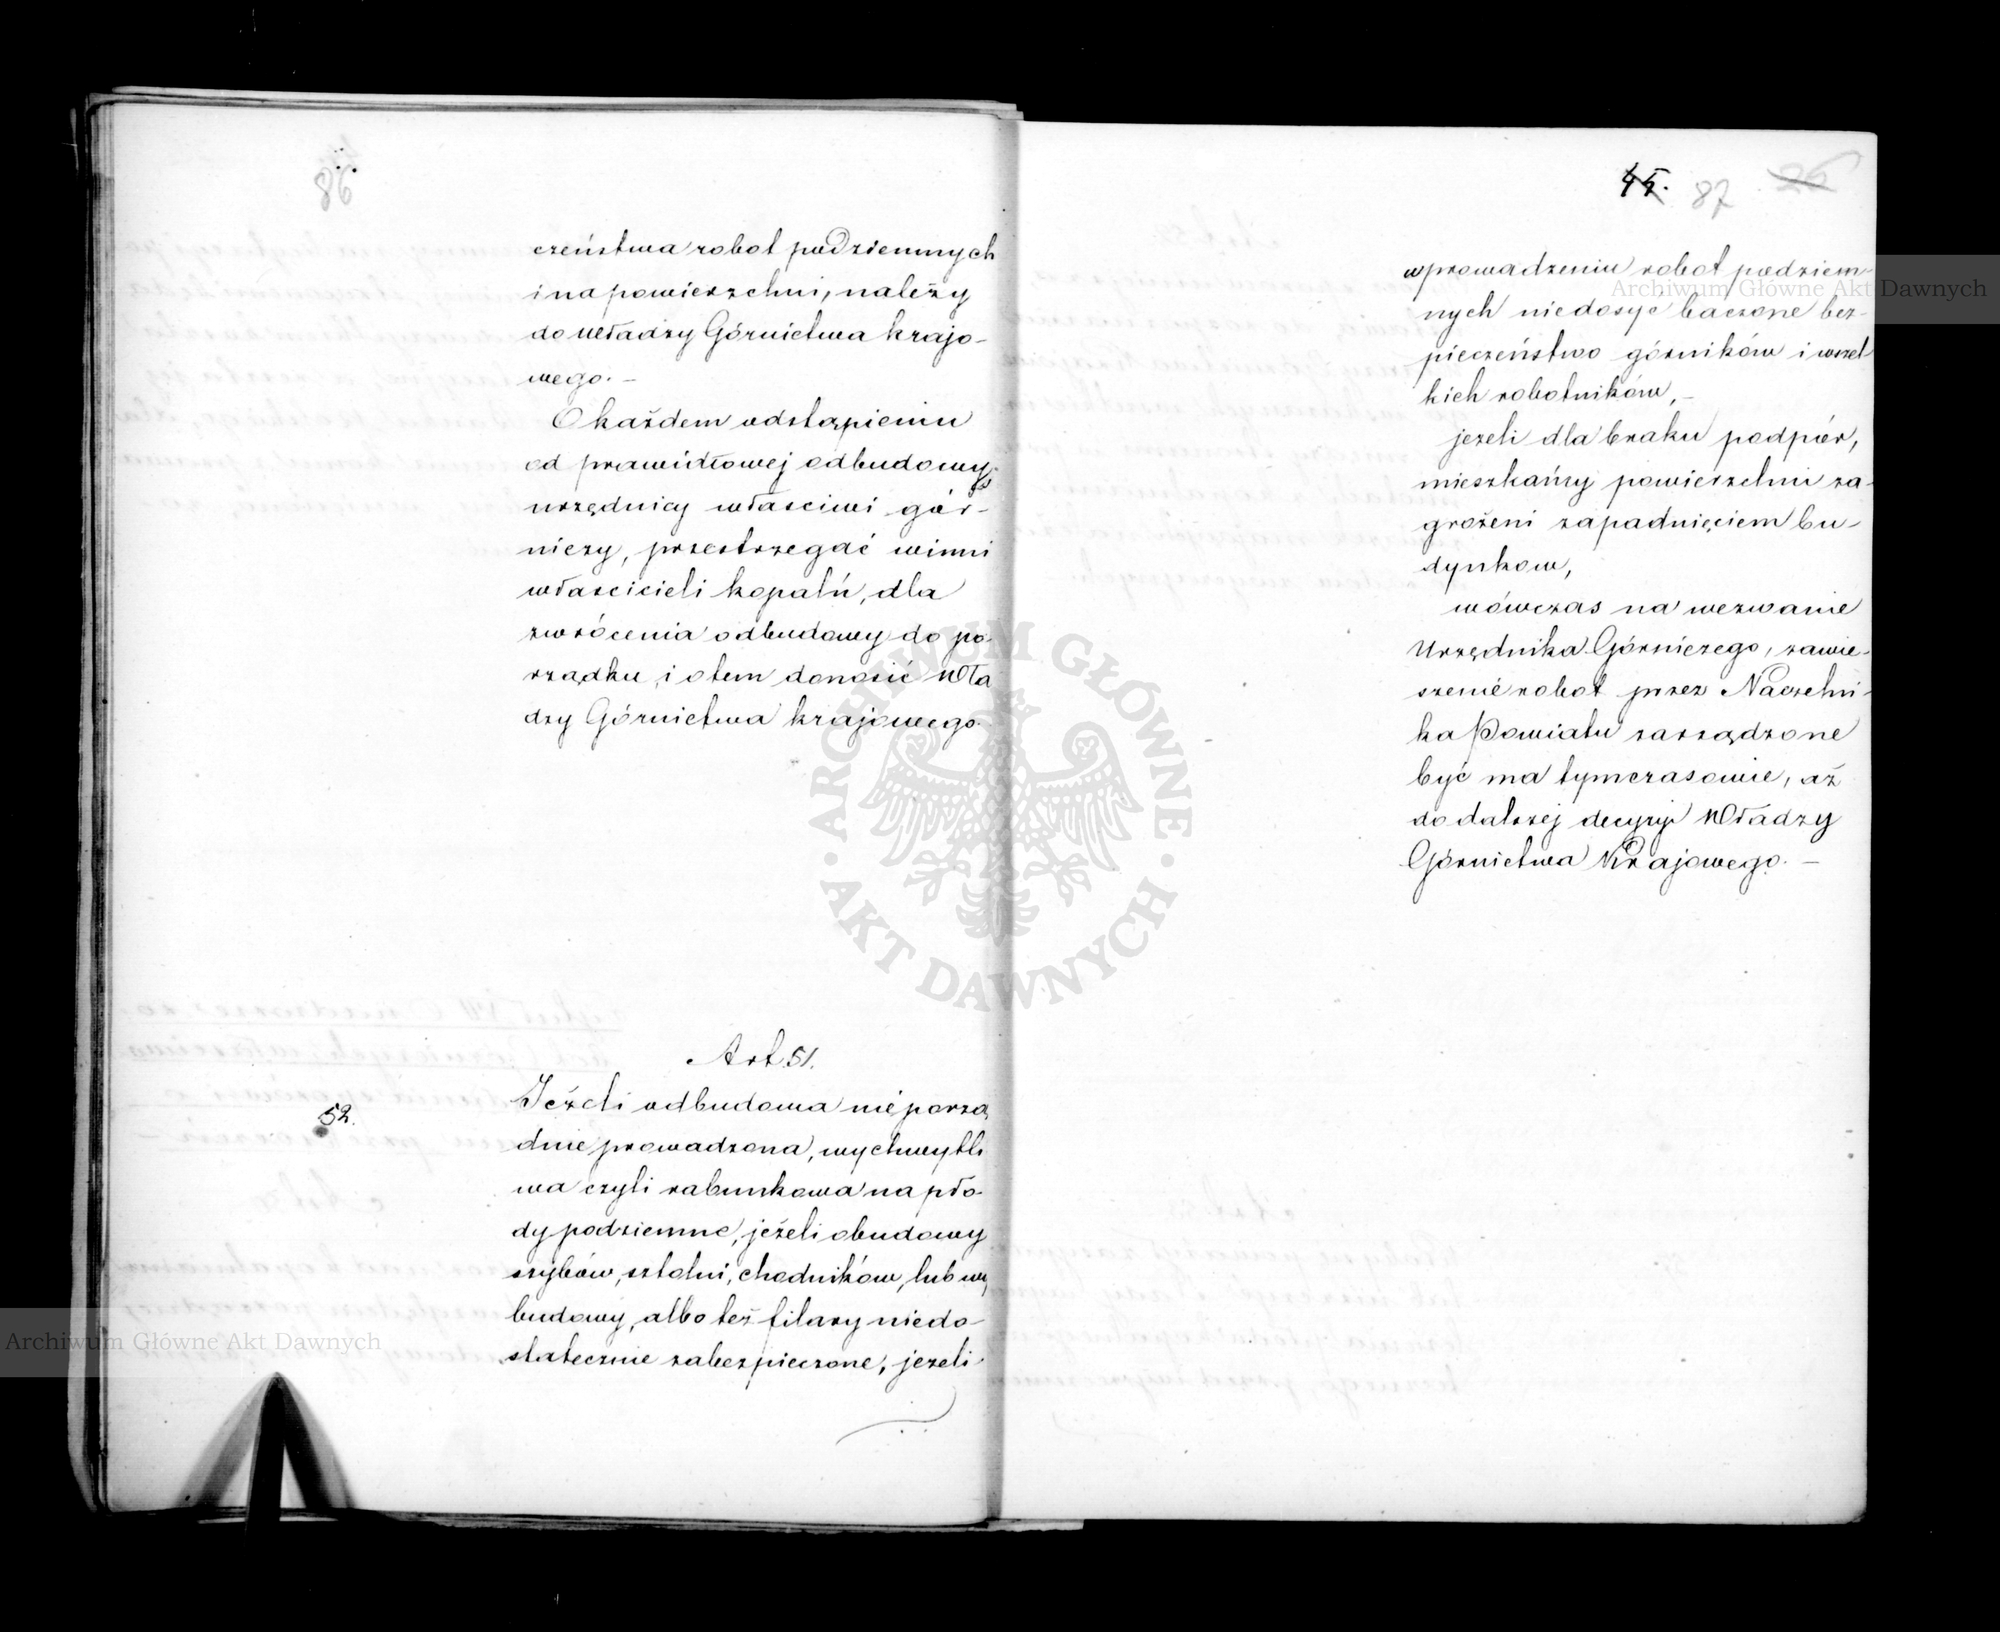 86
czeństwa robot podziemnych
i na powierzchni, należy
do Władzy Górnictwa krajo-
wego. –
O każdem odstąpieniu
od prawidłowej odbudowy,
urzędnicy właściwi gór-
niczy, przestrzegać winni
właścicieli kopalń, dla
zwrócenia odbudowy do po-
rządku, i otem donosić Wła
dzy Górnictwa krajowego.
Art. 51.
52.
Jeżeli odbudowa nieporzą
dnie prowadzona, wychwytli
wa czyli rabunkowa na pło-
dy podziemne, jeżeli obudowy
szybów, sztolni, chodników, lub wy
budowy, albo też filary niedo-
statecznie zabezpieczone, jeżeli
45. 87 26
w prowadzeniu robot podziem-
nych niedosyć baczone bez-
pieczeństwo górników i wszel
kich robotników, –
jezeli dla braku podpór,
mieszkańcy powierzchni za-
grożeni zapadnięciem bu-
dynkow,
wówczas na wezwanie
Urzędnika Górniczego, zawie-
szenie robot przez Naczelni-
ka Powiatu zarządzone
być ma tymczasowie, aż
do dalszej decyzyi Władzy
Górnictwa Krajowego. –
Archiwum Główne Akt Dawnych
Archiwum Główne Akt Dawnych
ARCHIWUM GŁÓWNE · AKT DAWNYCH ·